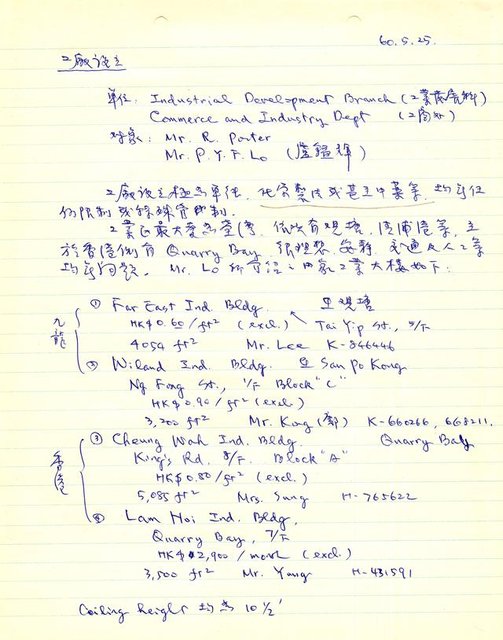 60.5.25.
工廠設立
單位: Industrial Development Branch (工業發展科)
Commerce and Industry Dept (工商处)
対象: Mr. R. Porter
Mr. P. Y. F. Lo (盧
工廠設立極為單純，
仍限制或特殊管制。
工業区最大處為荃湾，依次有观塘，
於香港側有 Quarry Bay, 很理想，安靜，交通及人工等
均無問題。Mr. Lo 所介绍之四家工業大樓如下:
九龍
① Far East Ind. Bldg. 在观塘
HK$0.60/ft² (excl.) Tai Yip St., 5/F
4054 ft² Mr. Lee K-846446
② Winland Ind. Bldg. 在 San Po Kong
Ng Fong St., 1/F Block "C"
HK$0.90/ft² (excl)
3,200 ft² Mr. Kong (鄺) K-660266, 668211.
香港
③ Cheung Wah Ind. Bldg. Quarry Bay
King's Rd. 8/F. Block "A"
HK$0.80/ft² (excl.)
5,085 ft² Mrs. Sung H-765622
④ Lam Hoi Ind. Bldg,
Quarry Bay, 7/F
HK$2,900/month (excl.)
3,500 ft² Mr. Yang H-431591
Ceiling height 均為 10½'